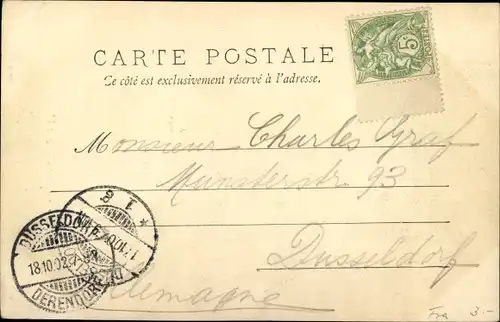 CARTE POSTALE
Ce côté est exclusivement réservé à l'adresse.
5
Monsieur Charles Graf
Munsterstr 93
Dusseldorf
Allemagne
DUSSELDORF
18.10.02.
DERENDORF
Fra 3.-